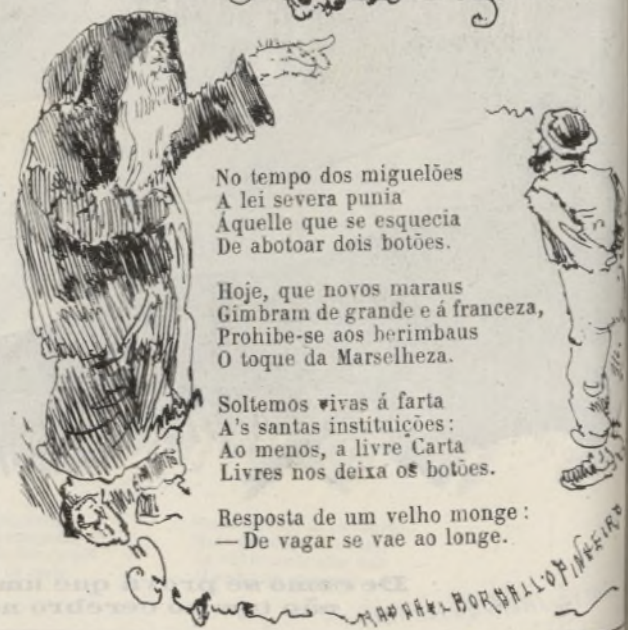 No tempo dos miguelões
A lei severa punia
Áquelle que se esquecia
De abotoar dois botões.
Hoje, que novos maraus
Gimbram de grande e á franceza,
Prohibe-se aos berimbaus
O toque da Marselheza.
Soltemos vivas á farta
A's santas instituições:
Ao menos, a livre Carta
Livres nos deixa os botões.
Resposta de um velho monge:
— De vagar se vae ao longe.
RAPHAEL BORDALLO PINHEIRO